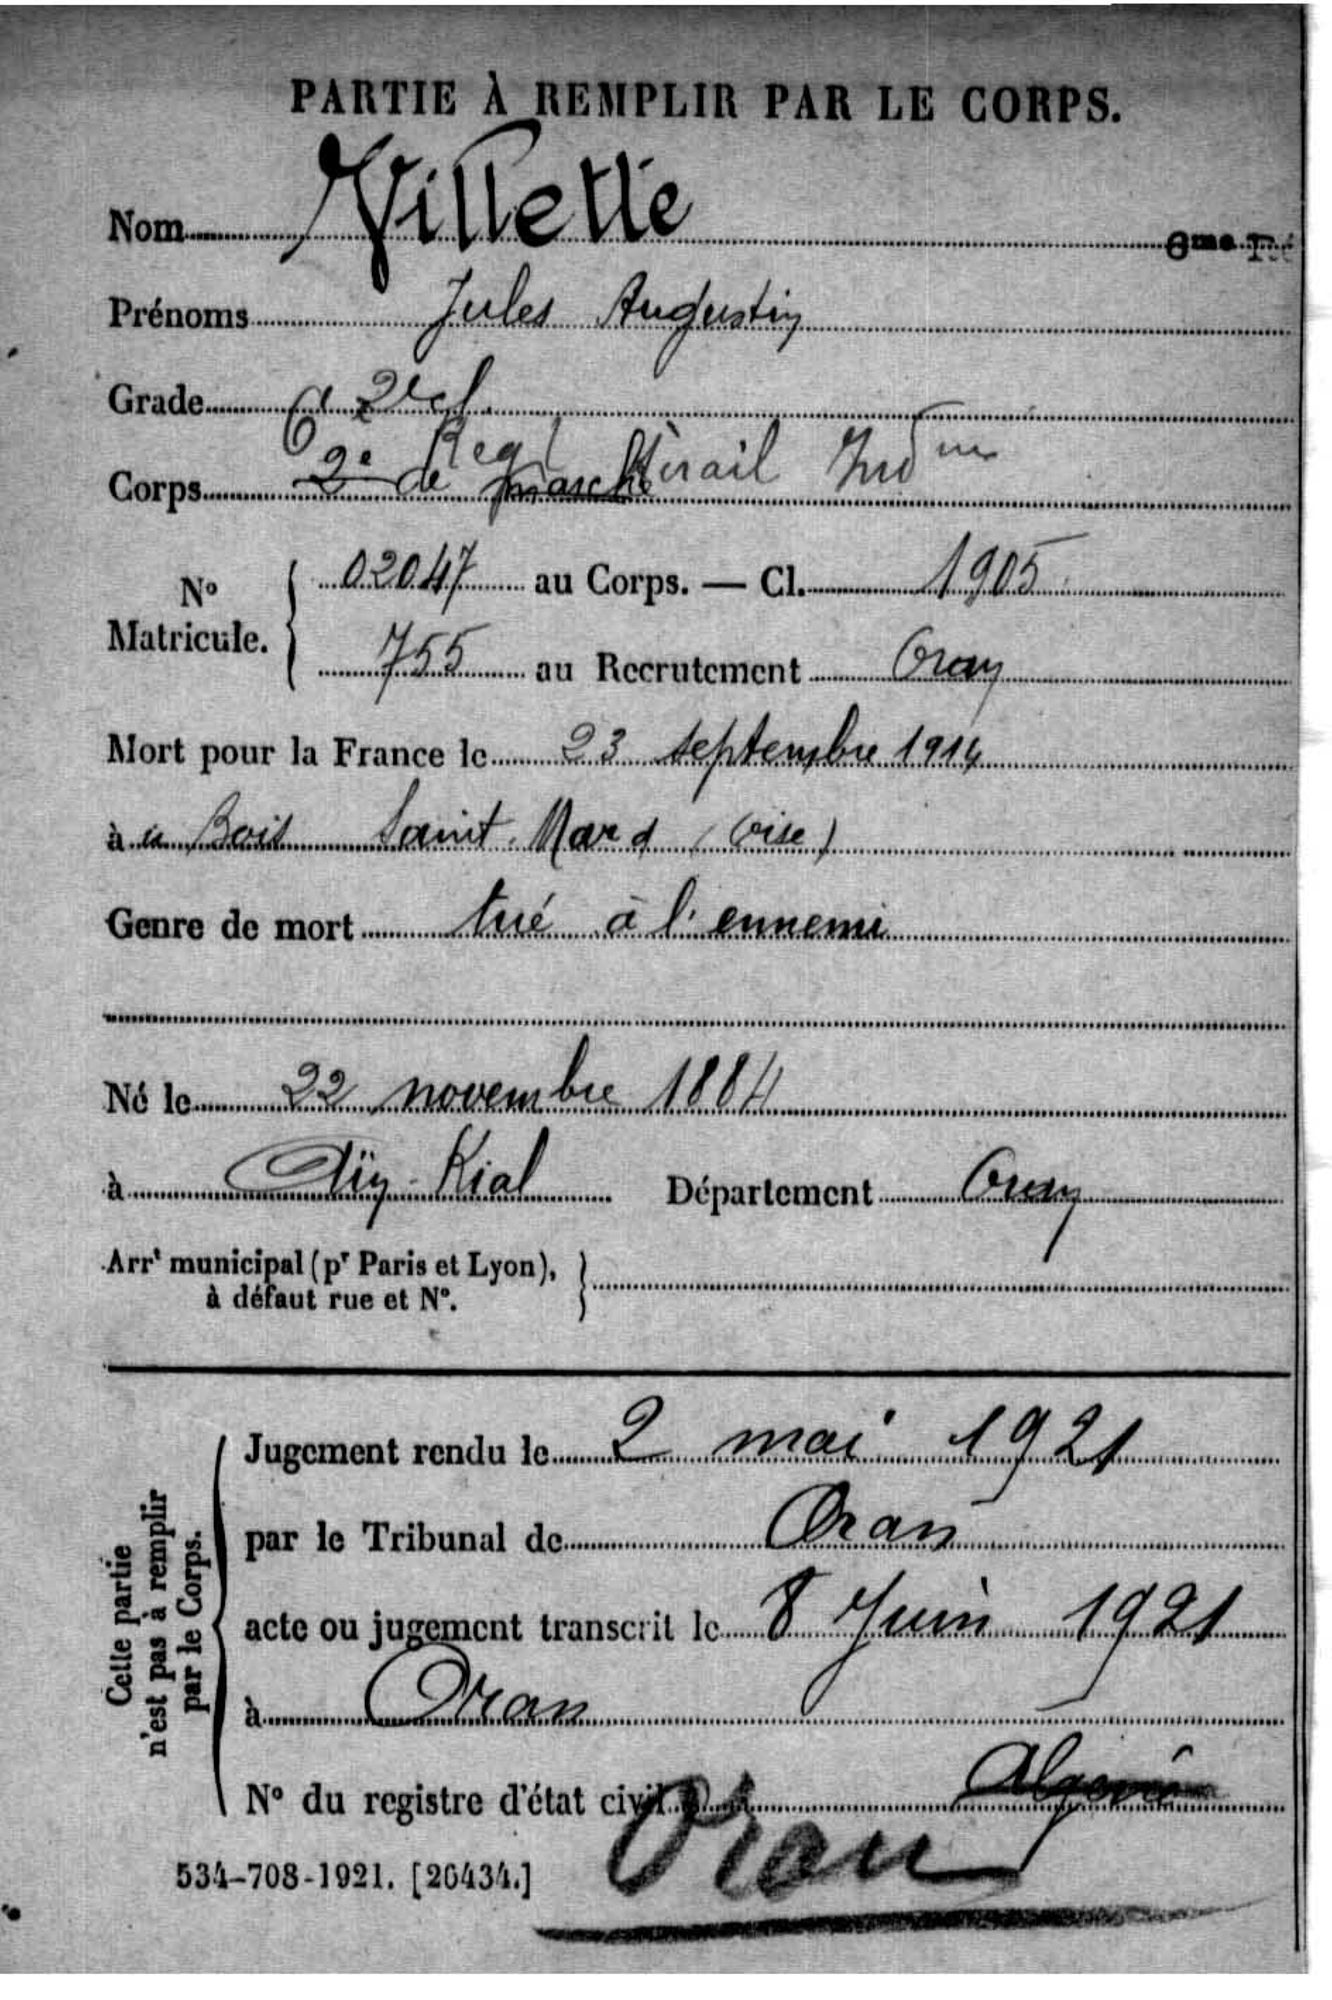 PARTIE À REMPLIR PAR LE CORPS.
Nom Villette 6me Ré
Prénoms Jules Augustin
Grade 2e cl
Corps 2e Regt Tirail Ind
de marche
N° Matricule. 02047 au Corps. — Cl. 1905
755 au Recrutement Oran
Mort pour la France le 23 septembre 1914
à u Bois Saint Mard (Oise)
Genre de mort tué à l'ennemi
Né le 22 novembre 1884
à Aïn-Kial Département Oran
Arrt municipal (pr Paris et Lyon),
à défaut rue et N°.
Cette partie
n'est pas à remplir
par le Corps.
Jugement rendu le 2 mai 1921
par le Tribunal de Oran
acte ou jugement transcrit le 8 Juin 1921
à Oran
N° du registre d'état civil Algérie
Oran
534-708-1921. [26434.]